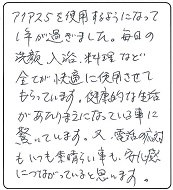 アクアス5を使用するようになって
1年が過ぎました。毎日の
洗顔、入浴、料理など
全てが快適に使用させて
もらっています。健康的な生活
があたりまえになっている事に
驚いています。又、電話の応対
もいつも素晴らしい事も、安心感
につながっていると思います。